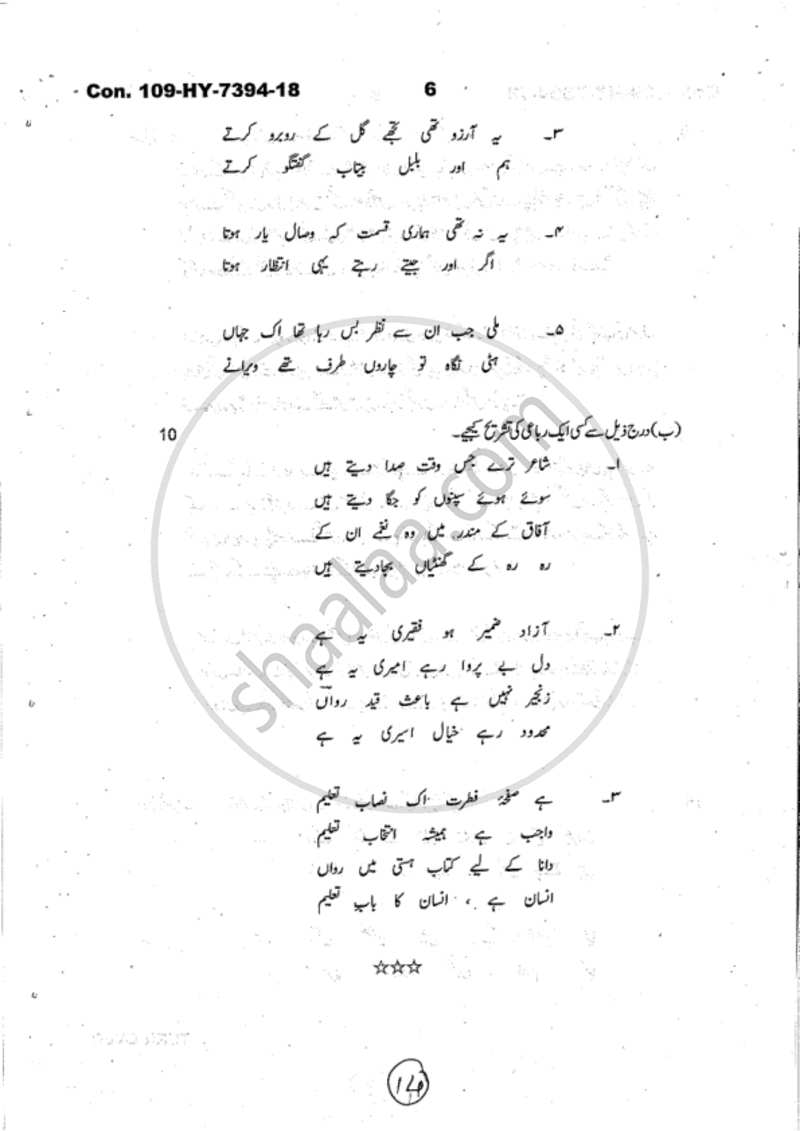 Con. 109-HY-7394-18 6
۳۔ یہ آرزو تھی تجھے گل کے روبرو کرتے
ہم اور بلبل بیتاب گفتگو کرتے
۴۔ یہ نہ تھی ہماری قسمت کہ وصال یار ہوتا
اگر اور جیتے رہتے یہی انتظار ہوتا
۵۔ ملی جب ان سے نظر بس رہا تھا اک جہاں
ہٹی نگاہ تو چاروں طرف تھے ویرانے
(ب) درج ذیل سے کسی ایک رباعی کی تشریح کیجیے۔ 10
۱۔ شاعر ترے جس وقت صدا دیتے ہیں
سوئے ہوئے سپنوں کو جگا دیتے ہیں
آفاق کے مندر میں وہ نغمے ان کے
رہ رہ کے گھنٹیاں بجادیتے ہیں
۲۔ آزاد ضمیر ہو فقیری یہ ہے
دل بے پروا رہے امیری یہ ہے
زنجیر نہیں ہے باعث قید رواںؔ
محدود رہے خیال اسیری یہ ہے
۳۔ ہے صفحۂ فطرت اک نصاب تعلیم
واجب ہے ہمیشہ انتخاب تعلیم
دانا کے لیے کتاب ہستی میں رواں
انسان ہے ، انسان کا باب تعلیم
☆☆☆
shaalaa.com